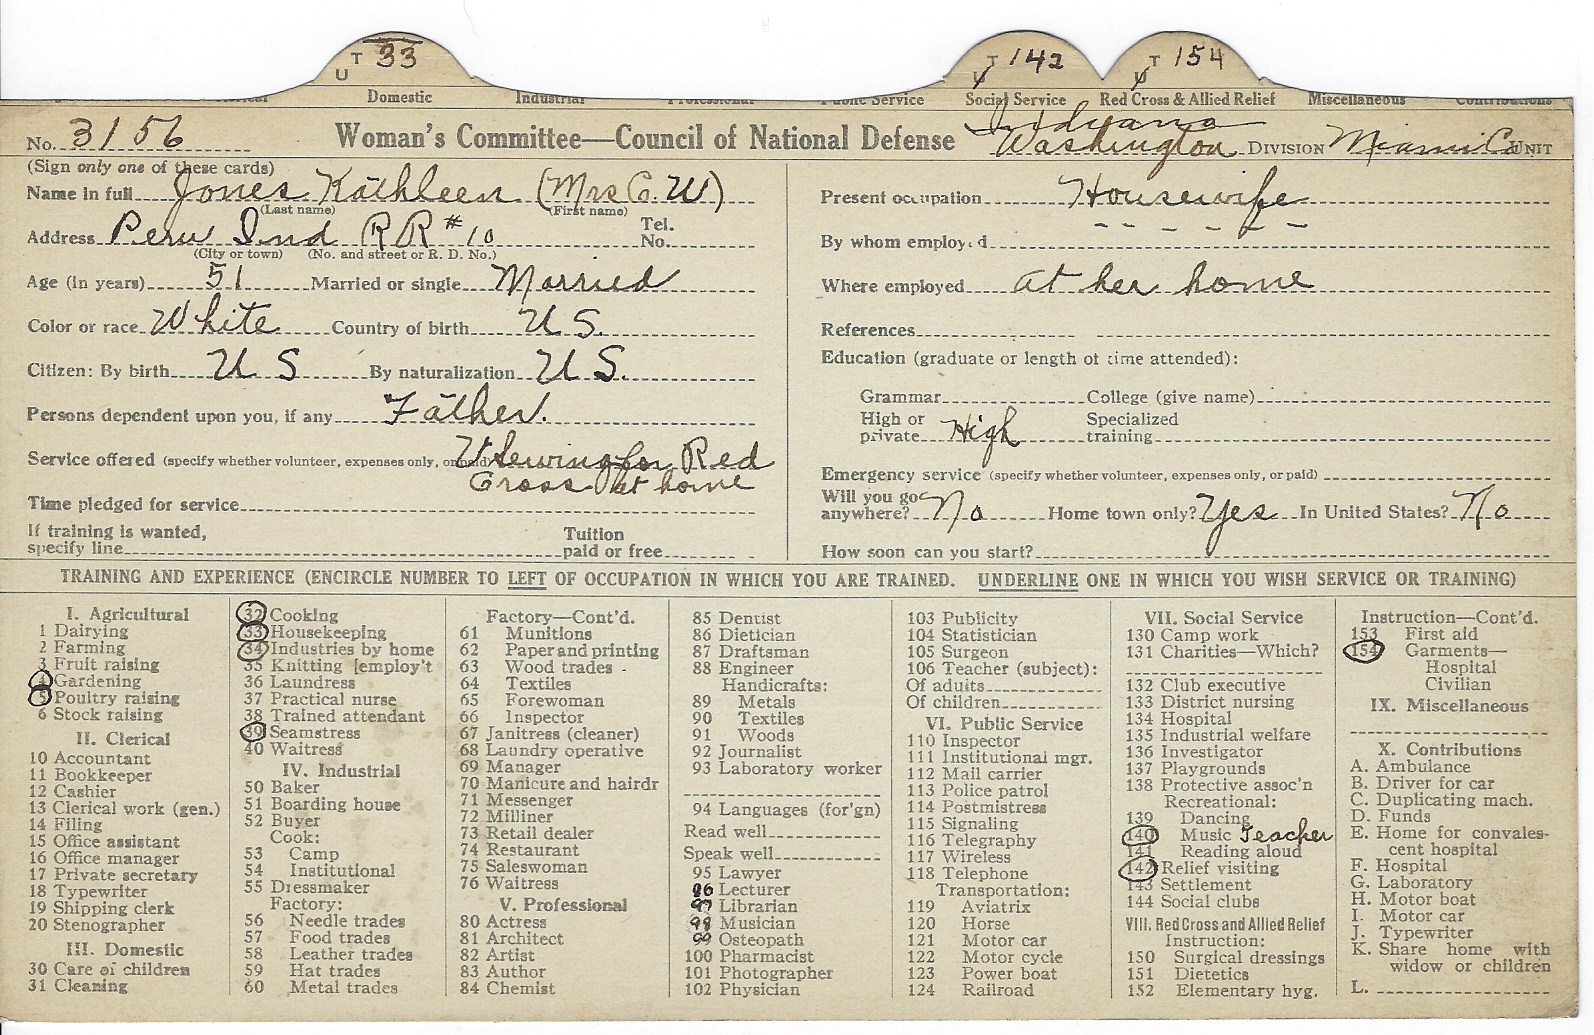 U T 33
U T 142
U T 154
Domestic Industrial Professional Public Service Social Service Red Cross & Allied Relief Miscellaneous Contributions
No. 3156 Woman's Committee—Council of National Defense Indiana
Washington DIVISION Miami Co UNIT
(Sign only one of these cards)
Name in full Jones Kathleen (Mrs C. W)
(Last name) (First name)
Address Peru Ind RR # 10 Tel. No.
(City or town) (No. and street or R. D. No.)
Age (in years) 51 Married or single Married
Color or race White Country of birth U S.
Citizen: By birth U S By naturalization U S.
Persons dependent upon you, if any Father.
Service offered (specify whether volunteer, expenses only, or paid) V Sewing for Red
Cross at home
Time pledged for service
If training is wanted, specify line Tuition paid or free
Present occupation Housewife
By whom employed – – – – – –
Where employed at her home
References
Education (graduate or length of time attended):
Grammar College (give name)
High or private High Specialized training
Emergency service (specify whether volunteer, expenses only, or paid)
Will you go anywhere? No Home town only? Yes In United States? No
How soon can you start?
TRAINING AND EXPERIENCE (ENCIRCLE NUMBER TO LEFT OF OCCUPATION IN WHICH YOU ARE TRAINED. UNDERLINE ONE IN WHICH YOU WISH SERVICE OR TRAINING)
I. Agricultural
1 Dairying
2 Farming
3 Fruit raising
4 Gardening
5 Poultry raising
6 Stock raising
II. Clerical
10 Accountant
11 Bookkeeper
12 Cashier
13 Clerical work (gen.)
14 Filing
15 Office assistant
16 Office manager
17 Private secretary
18 Typewriter
19 Shipping clerk
20 Stenographer
III. Domestic
30 Care of children
31 Cleaning
32 Cooking
33 Housekeeping
34 Industries by home
35 Knitting [employ't
36 Laundress
37 Practical nurse
38 Trained attendant
39 Seamstress
40 Waitress
IV. Industrial
50 Baker
51 Boarding house
52 Buyer
Cook:
53 Camp
54 Institutional
55 Dressmaker
Factory:
56 Needle trades
57 Food trades
58 Leather trades
59 Hat trades
60 Metal trades
Factory—Cont'd.
61 Munitions
62 Paper and printing
63 Wood trades
64 Textiles
65 Forewoman
66 Inspector
67 Janitress (cleaner)
68 Laundry operative
69 Manager
70 Manicure and hairdr
71 Messenger
72 Milliner
73 Retail dealer
74 Restaurant
75 Saleswoman
76 Waitress
V. Professional
80 Actress
81 Architect
82 Artist
83 Author
84 Chemist
85 Dentist
86 Dietician
87 Draftsman
88 Engineer
Handicrafts:
89 Metals
90 Textiles
91 Woods
92 Journalist
93 Laboratory worker
94 Languages (for'gn)
Read well
Speak well
95 Lawyer
96 Lecturer
97 Librarian
98 Musician
99 Osteopath
100 Pharmacist
101 Photographer
102 Physician
103 Publicity
104 Statistician
105 Surgeon
106 Teacher (subject):
Of adults
Of children
VI. Public Service
110 Inspector
111 Institutional mgr.
112 Mail carrier
113 Police patrol
114 Postmistress
115 Signaling
116 Telegraphy
117 Wireless
118 Telephone
Transportation:
119 Aviatrix
120 Horse
121 Motor car
122 Motor cycle
123 Power boat
124 Railroad
VII. Social Service
130 Camp work
131 Charities—Which?
132 Club executive
133 District nursing
134 Hospital
135 Industrial welfare
136 Investigator
137 Playgrounds
138 Protective assoc'n
Recreational:
139 Dancing
140 Music Teacher
141 Reading aloud
142 Relief visiting
143 Settlement
144 Social clubs
VIII. Red Cross and Allied Relief
Instruction:
150 Surgical dressings
151 Dietetics
152 Elementary hyg.
Instruction—Cont'd.
153 First aid
154 Garments—
Hospital
Civilian
IX. Miscellaneous
X. Contributions
A. Ambulance
B. Driver for car
C. Duplicating mach.
D. Funds
E. Home for convales-
cent hospital
F. Hospital
G. Laboratory
H. Motor boat
I. Motor car
J. Typewriter
K. Share home with
widow or children
L.